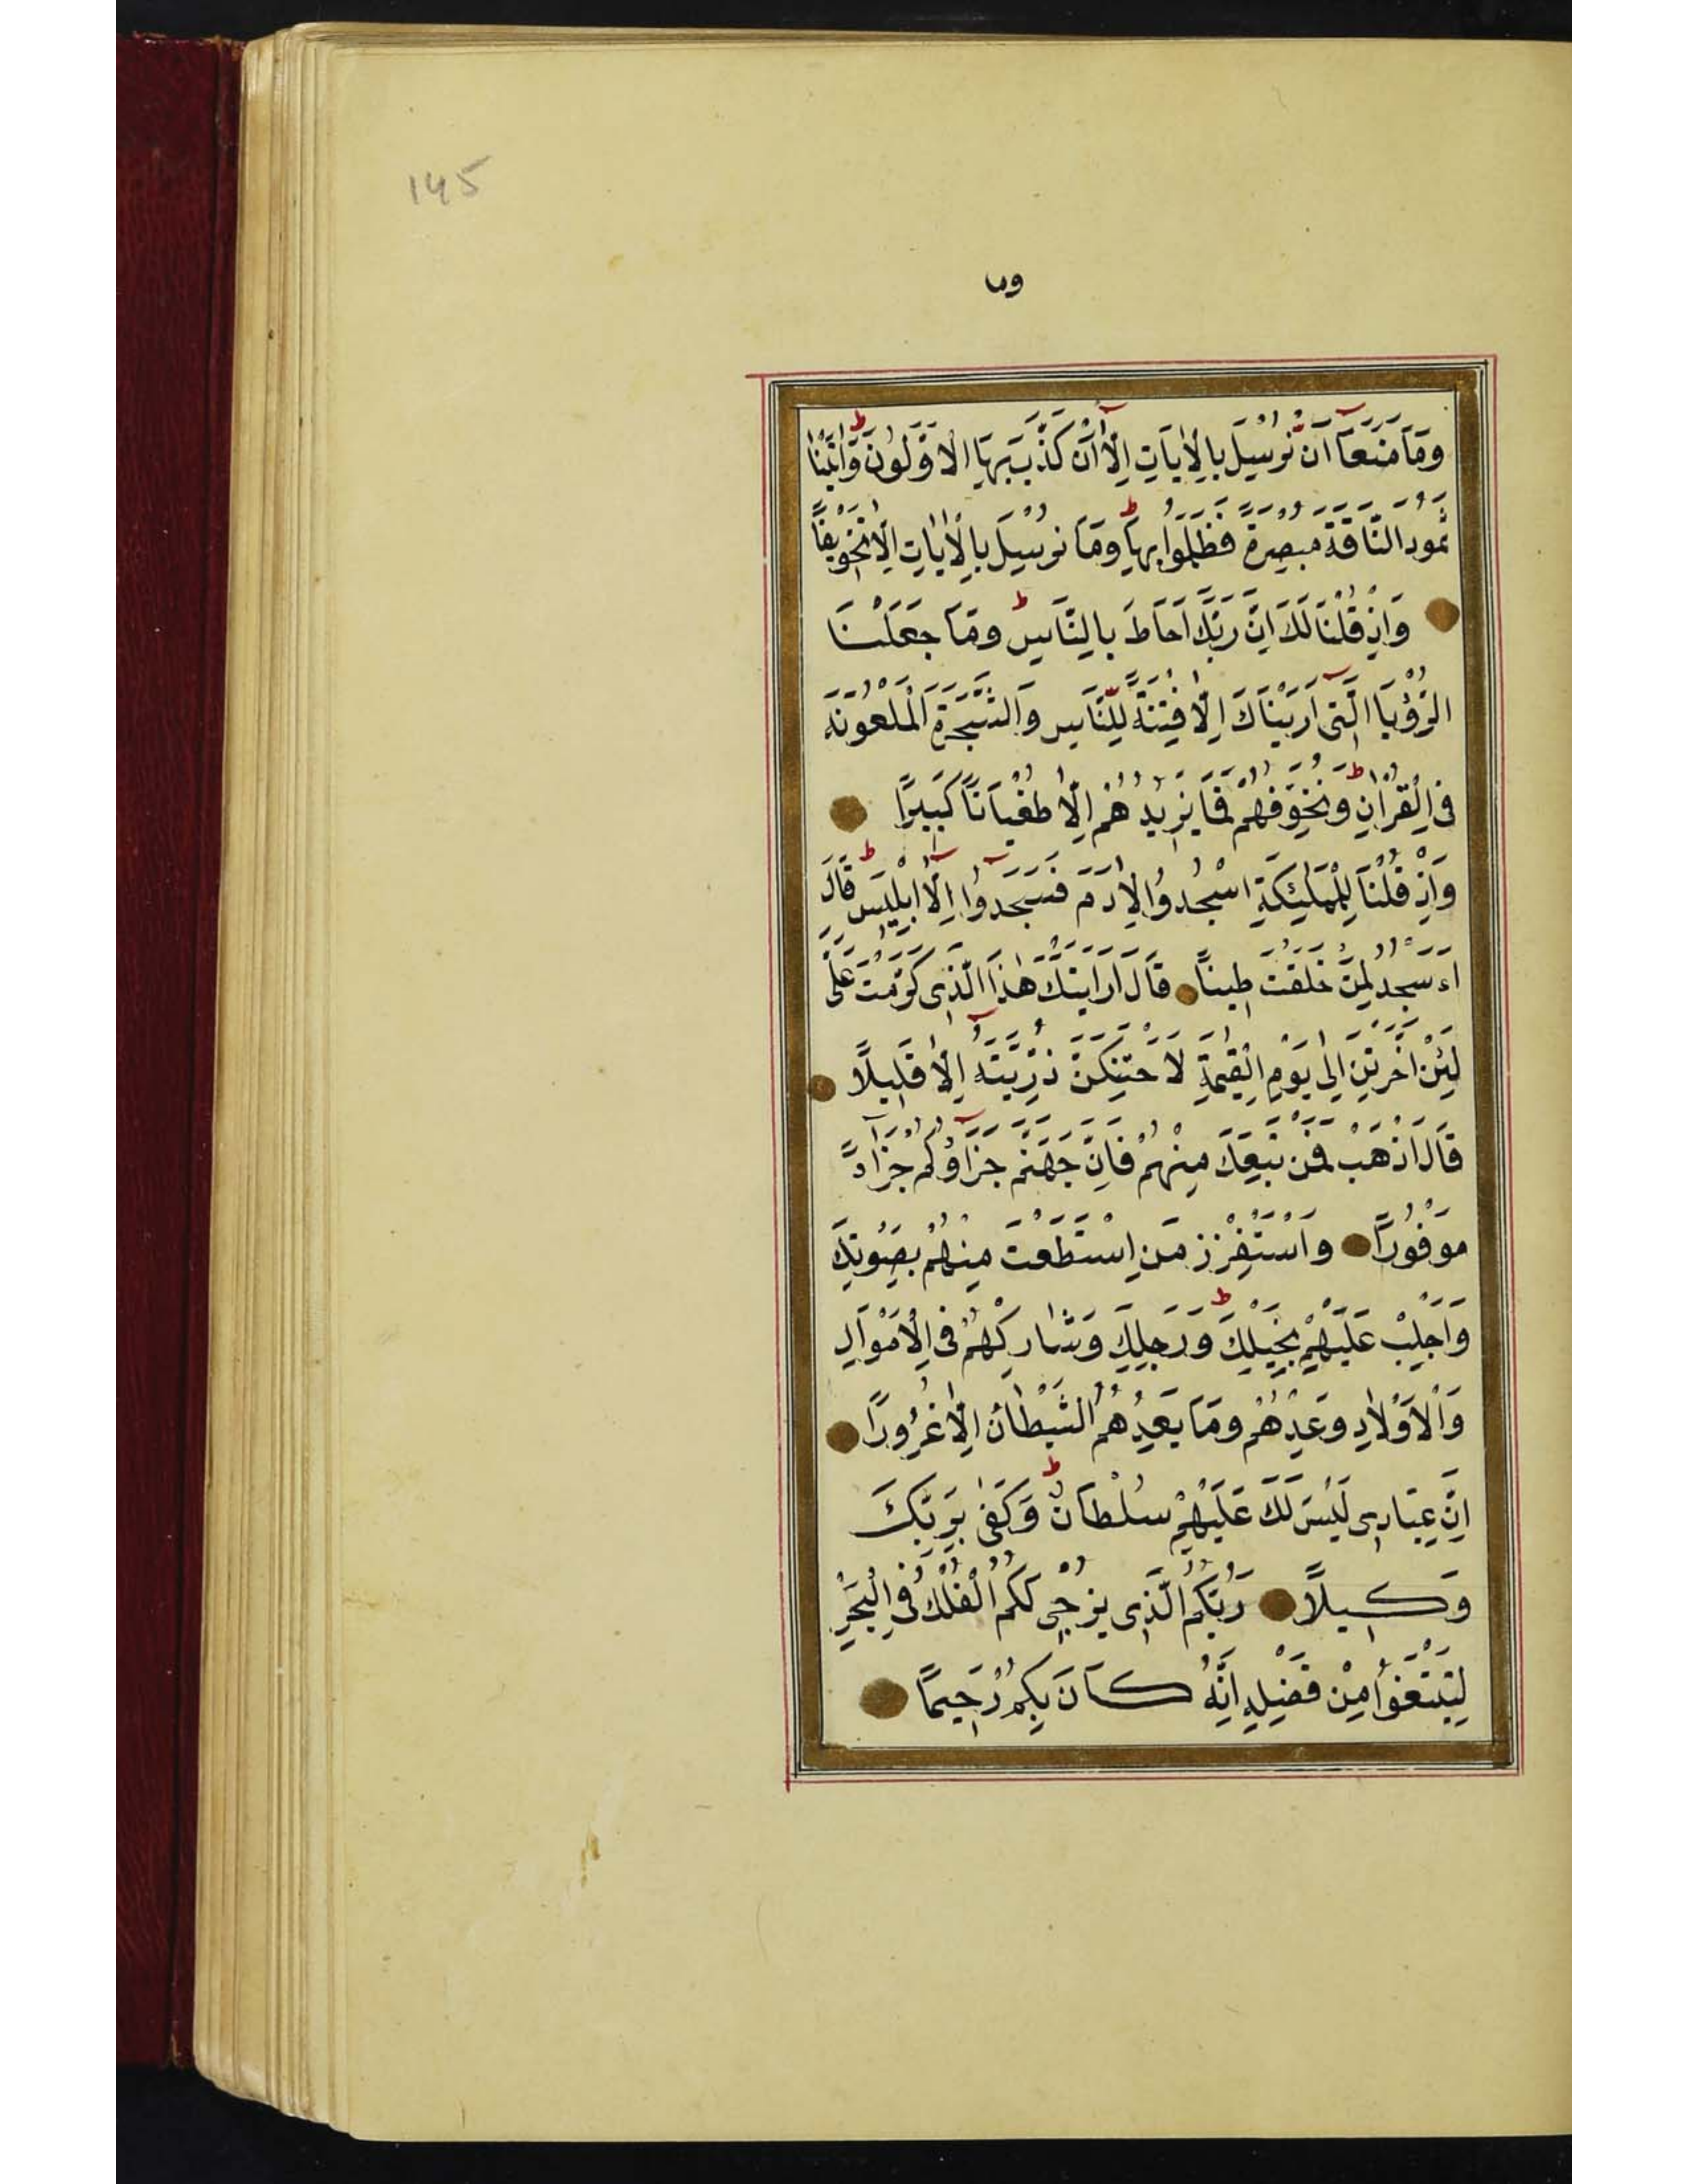 145
وما
وَمَا مَنَعَنَا اَنْ نُرْسِلَ بِالْاٰيَاتِ اِلَّا اَنْ كَذَّبَ بِهَا الْاَوَّلُونَ وَاٰتَيْنَا
ثَمُودَ النَّاقَةَ مُبْصِرَةً فَظَلَمُوا بِهَا وَمَا نُرْسِلُ بِالْاٰيَاتِ اِلَّا تَخْوِيفًا
وَاِذْ قُلْنَا لَكَ اِنَّ رَبَّكَ اَحَاطَ بِالنَّاسِ وَمَا جَعَلْنَا
الرُّؤْيَا الَّتِى اَرَيْنَاكَ اِلَّا فِتْنَةً لِلنَّاسِ وَالشَّجَرَةَ الْمَلْعُونَةَ
فِى الْقُرْاٰنِ وَنُخَوِّفُهُمْ فَمَا يَزِيدُهُمْ اِلَّا طُغْيَانًا كَبِيرًا
وَاِذْ قُلْنَا لِلْمَلٰئِكَةِ اسْجُدُوا لِاٰدَمَ فَسَجَدُوا اِلَّا اِبْلِيسَ قَالَ
ءَاَسْجُدُ لِمَنْ خَلَقْتَ طِينًا قَالَ اَرَاَيْتَكَ هٰذَا الَّذِى كَرَّمْتَ عَلَىَّ
لَئِنْ اَخَّرْتَنِ اِلٰى يَوْمِ الْقِيٰمَةِ لَاَحْتَنِكَنَّ ذُرِّيَّتَهُ اِلَّا قَلِيلًا
قَالَ اذْهَبْ فَمَنْ تَبِعَكَ مِنْهُمْ فَاِنَّ جَهَنَّمَ جَزَاؤُكُمْ جَزَاءً
مَوْفُورًا وَاسْتَفْزِزْ مَنِ اسْتَطَعْتَ مِنْهُمْ بِصَوْتِكَ
وَاَجْلِبْ عَلَيْهِمْ بِخَيْلِكَ وَرَجِلِكَ وَشَارِكْهُمْ فِى الْاَمْوَالِ
وَالْاَوْلَادِ وَعِدْهُمْ وَمَا يَعِدُهُمُ الشَّيْطَانُ اِلَّا غُرُورًا
اِنَّ عِبَادِى لَيْسَ لَكَ عَلَيْهِمْ سُلْطَانٌ وَكَفٰى بِرَبِّكَ
وَكِيلًا رَبُّكُمُ الَّذِى يُزْجِى لَكُمُ الْفُلْكَ فِى الْبَحْرِ
لِتَبْتَغُوا مِنْ فَضْلِهِ اِنَّهُ كَانَ بِكُمْ رَحِيمًا